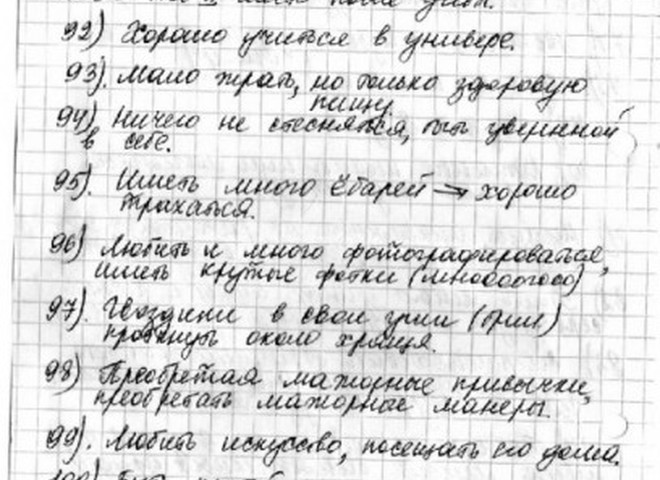 92) Хорошо учиться в универе.
93). Мало жрать, но только здоровую
пищу
94) Ничего не стесняться, быть уверенной
в себе.
95). Иметь много ёбарей → хорошо
трахаться.
96) Любить и много фотографироваться,
иметь крутые фотки (многоогоо)
97). Гвоздики в свои ушки (брил.)
проткнуть около хряща.
98) Преобретая мажорные привычки,
преобретать мажорные манеры.
99). Любить искусство, посещать его дома.
100) Быть